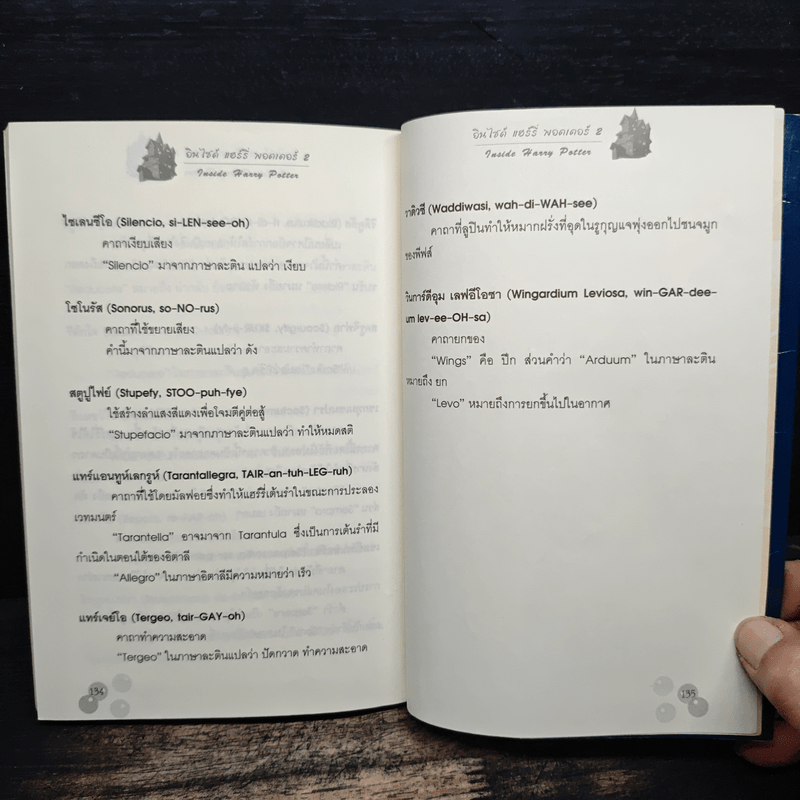 อินไซด์ แฮร์รี่ พอตเตอร์ 2
Inside Harry Potter
ไซเลนซีโอ (Silencio, si-LEN-see-oh)
คาถาเงียบเสียง
“Silencio” มาจากภาษาละติน แปลว่า เงียบ
โซโนรัส (Sonorus, so-NO-rus)
คาถาที่ใช้ขยายเสียง
คำนี้มาจากภาษาละตินแปลว่า ดัง
สตูปูไฟย์ (Stupefy, STOO-puh-fye)
ใช้สร้างลำแสงสีแดงเพื่อโจมตีคู่ต่อสู้
“Stupefacio” มาจากภาษาละตินแปลว่า ทำให้หมดสติ
แทร์แอนทูห์เลกรูห์ (Tarantallegra, TAIR-an-tuh-LEG-ruh)
คาถาที่ใช้โดยมัลฟอยซึ่งทำให้แฮร์รี่เต้นรำในขณะการประลอง
เวทมนตร์
“Tarantella” อาจมาจาก Tarantula ซึ่งเป็นการเต้นรำที่มี
กำเนิดในตอนใต้ของอิตาลี
“Allegro” ในภาษาอิตาลีมีความหมายว่า เร็ว
แทร์เจย์โอ (Tergeo, tair-GAY-oh)
คาถาทำความสะอาด
“Tergeo” ในภาษาละตินแปลว่า ปัดกวาด ทำความสะอาด
134
อินไซด์ แฮร์รี่ พอตเตอร์ 2
Inside Harry Potter
าดิวซี (Waddiwasi, wah-di-WAH-see)
คาถาที่ลูปินทำให้หมากฝรั่งที่อุดในรูกุญแจพุ่งออกไปชนจมูก
ของพีฟส์
วินการ์ดีอุม เลฟอีโอซา (Wingardium Leviosa, win-GAR-dee-
um lev-ee-OH-sa)
คาถายกของ
“Wings” คือ ปีก ส่วนคำว่า “Arduum” ในภาษาละติน
หมายถึง ยก
“Levo” หมายถึงการยกขึ้นไปในอากาศ
135